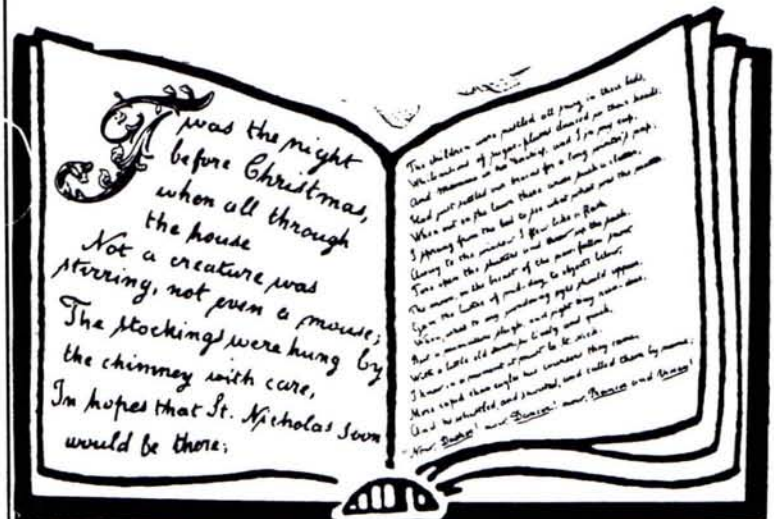 Twas the night
before Christmas,
when all through
the house
Not a creature was
stirring, not even a mouse;
The stockings were hung by
the chimney with care,
In hopes that St. Nicholas soon
would be there;
The children were nestled all snug in their beds,
While visions of sugar-plums danced in their heads;
And Mamma in her 'kerchief, and I in my cap,
Had just settled our brains for a long winter's nap.
When out on the lawn there arose such a clatter,
I sprang from the bed to see what was the matter.
Away to the window I flew like a flash,
Tore open the shutters and threw up the sash.
The moon, on the breast of the new-fallen snow
Gave the lustre of mid-day to objects below,
When, what to my wondering eyes should appear,
But a miniature sleigh, and eight tiny rein-deer,
With a little old driver, so lively and quick,
I knew in a moment it must be St. Nick.
More rapid than eagles his coursers they came,
And he whistled, and shouted, and called them by name;
"Now, Dasher! now, Dancer! now, Prancer and Vixen!